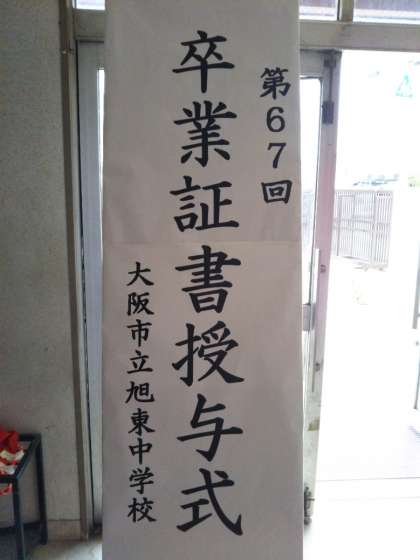 第67回
卒業証書授与式
大阪市立旭東中学校